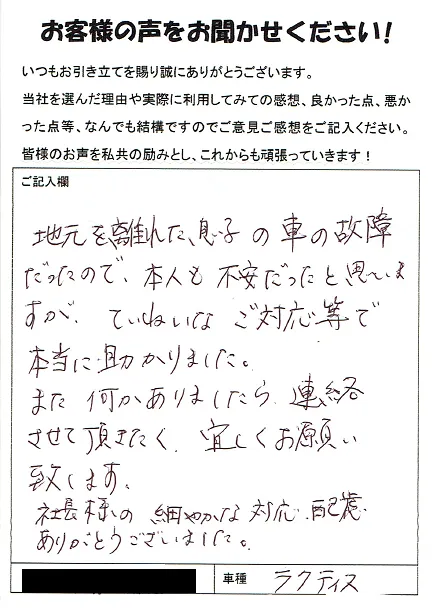 お客様の声をお聞かせください!
いつもお引き立てを賜り誠にありがとうございます。
当社を選んだ理由や実際に利用してみての感想、良かった点、悪か
った点等、なんでも結構ですのでご意見ご感想をご記入ください。
皆様のお声を私共の励みとし、これからも頑張っていきます!
ご記入欄
地元を離れた、息子の車の故障
だったので、本人も不安だったと思いま
すが、ていねいなご対応等で
本当に助かりました。
また何かありましたら、連絡
させて頂きたく、宜しくお願い
致します。
社長様の細やかな対応、配慮
ありがとうございました。
車種
ラクティス